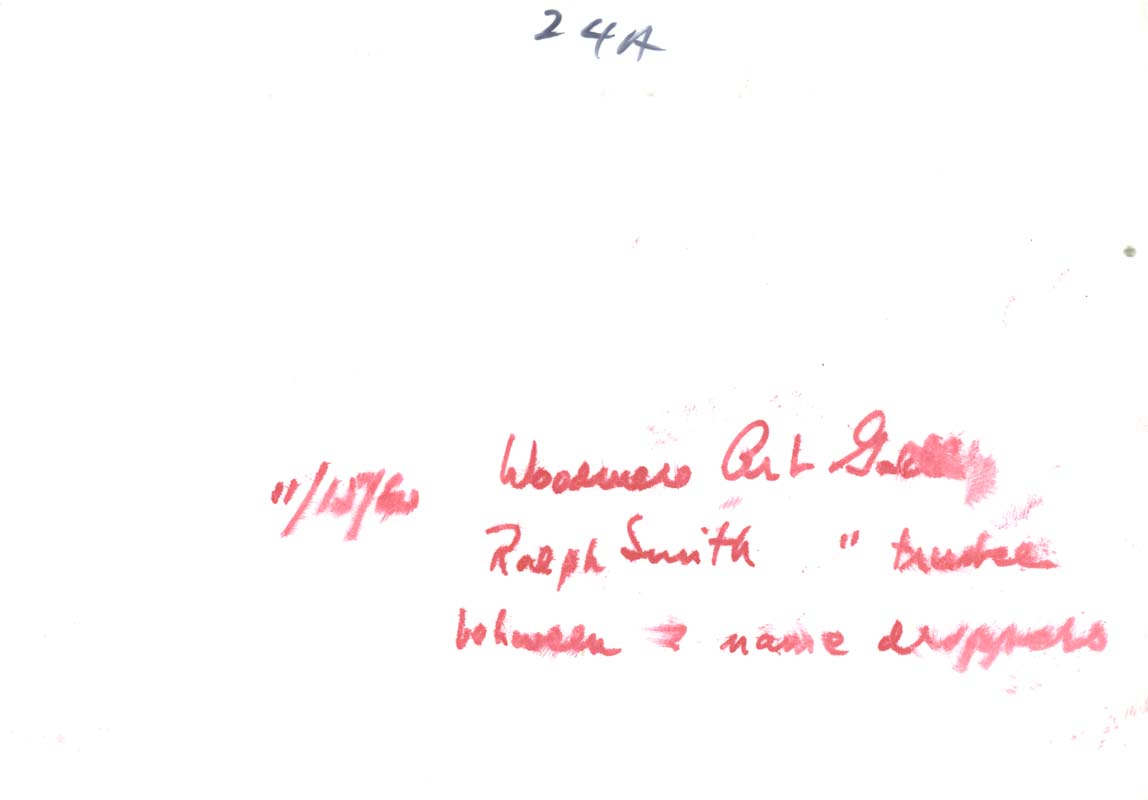 24A
Woodmere Art Gallery
11/15/60
Ralph Smith " trustee
between 2 name droppers